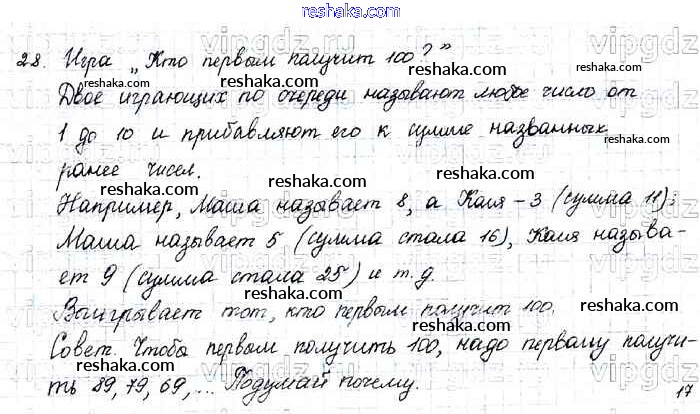 reshaka.com
28. Игра „Кто первым получит 100?”
reshaka.com
Двое играющих по очереди называют любое число от
1 до 10 и прибавляют его к сумме названных
reshaka.com reshaka.com
ранее чисел.
reshaka.com reshaka.com
Например, Маша называет 8, а Коля - 3 (сумма 11);
reshaka.com
Маша называет 5 (сумма стала 16), Коля называ-
ет 9 (сумма стала 25) и т.д.
reshaka.com reshaka.com
Выигрывает тот, кто первым получит 100.
reshaka.com reshaka.com
Совет. Чтобы первым получить 100, надо первому получи-
reshaka.com
ть 89, 79, 69, ... Подумай почему.
17
reshaka.com reshaka.com